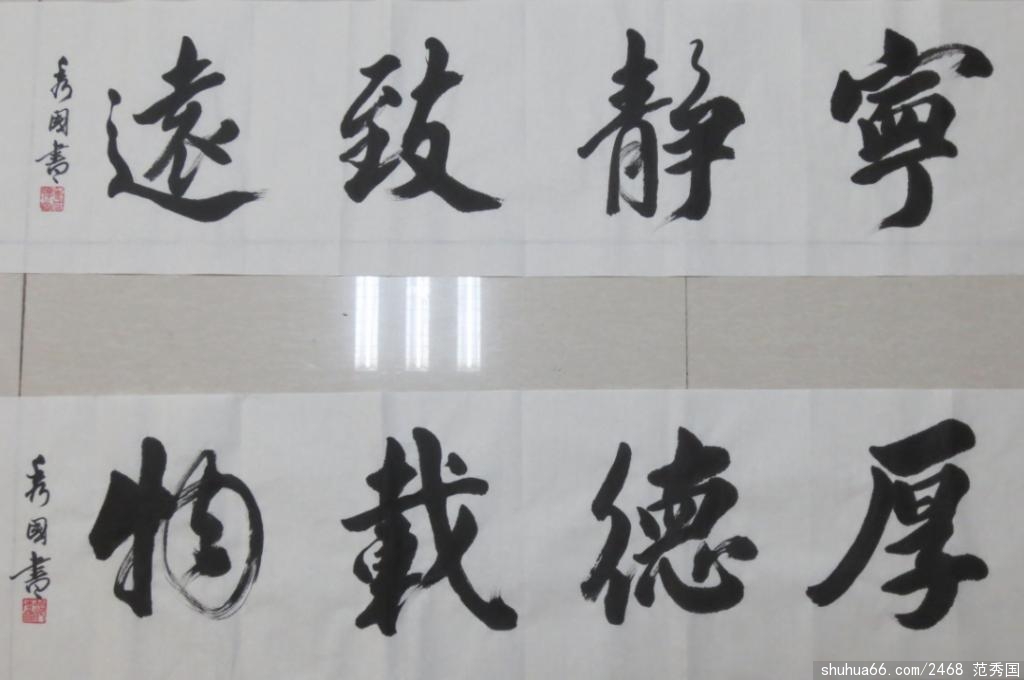 寧靜致遠
秀國書
厚德載物
秀國書
shuhua66.com/2468 范秀国